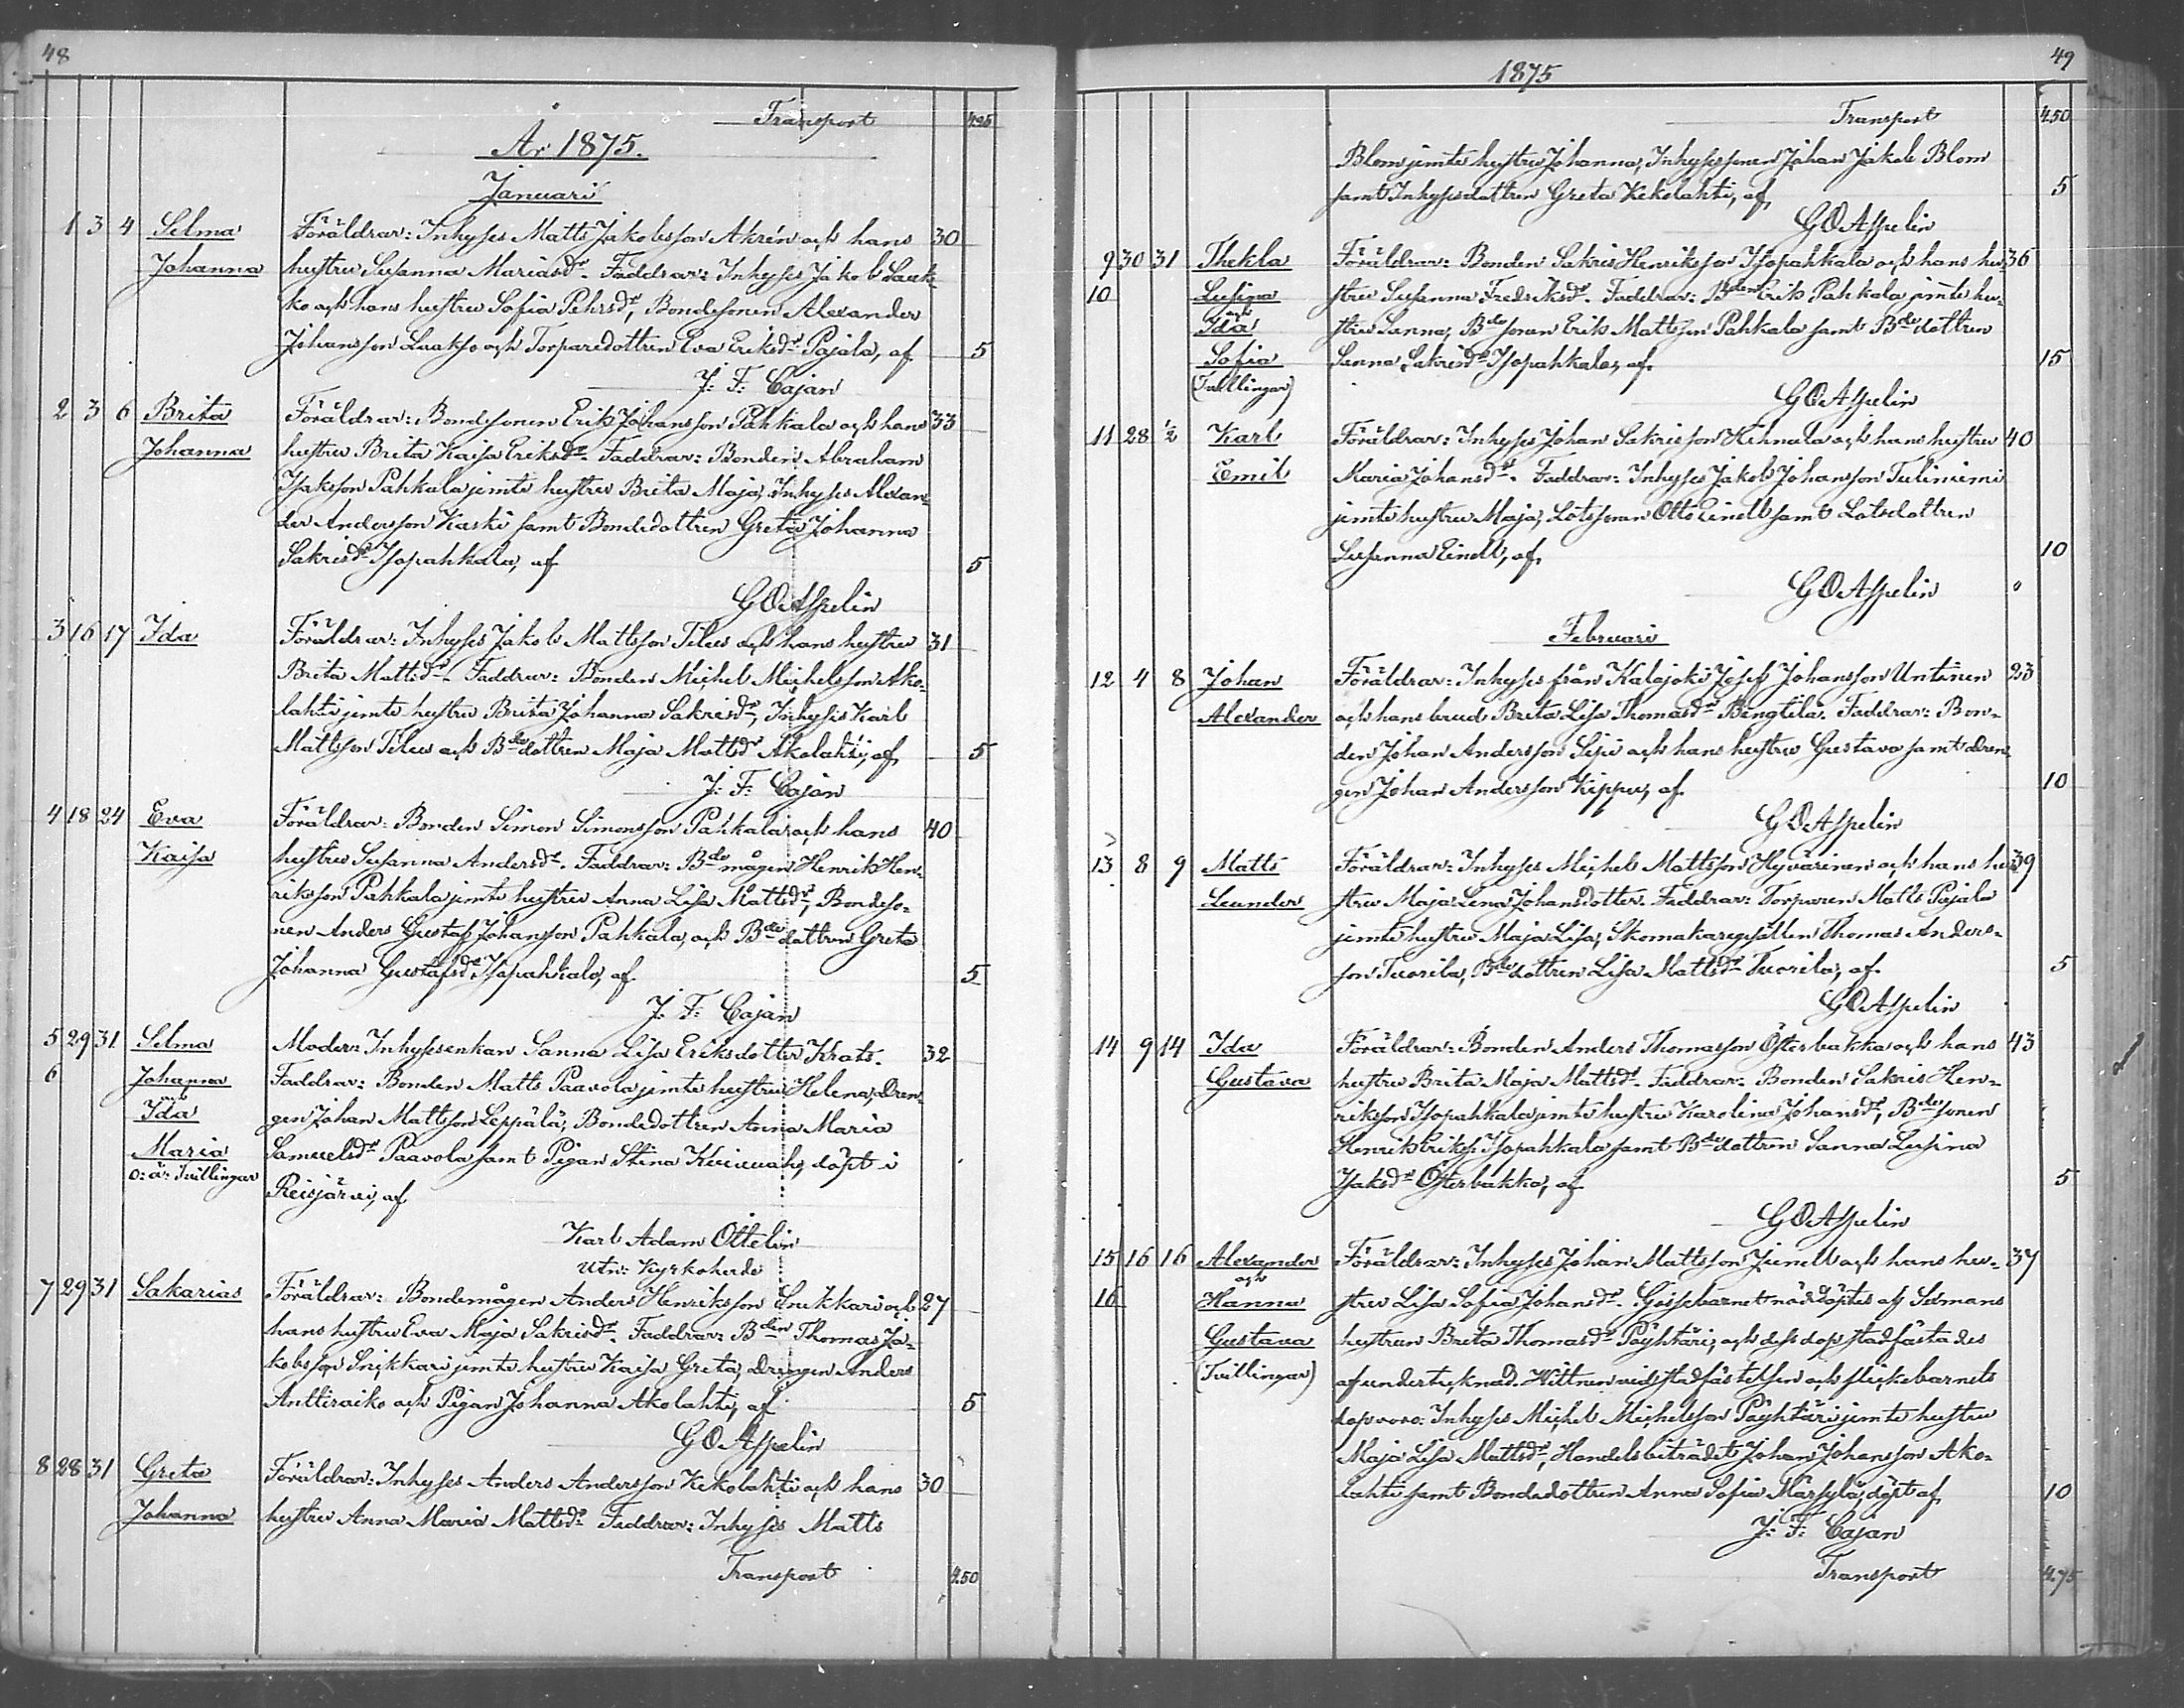 48
Transport 425
År 1875.
Januari
1 3 4 Selma Föräldrar: Inhyses Matts Jakobsson Akrén och hans 30
Johanna hustru Susanna Mariasdr. Faddrar: Inhyses Jakob Lauk-
ko och hans hustru Sofia Pehrsdr, Bondesonen Alexander
Johansson Laakso och Torparedottren Eva Eriksdr Pajala, af 5
J: F: Cajan
2 3 6 Brita Föräldrar: Bondesonen Erik Johansson Pahkala och hans 33
Johanna hustru Brita Kaisa Eriksdr. Faddrar: Bonden Abraham
Isaksson Pahkala jemte hustru Brita Maja, Inhyses Alexan-
der Andersson Kaski samt Bondedottren Greta Johanna
Sakrisdr Isopahkala, af 5
G O Aspelin
3 16 17 Ida Föräldrar: Inhyses Jakob Mattsson Tilus och hans hustru 31
Brita Mattsdr. Faddrar: Bonden Michel Michelsson Ako-
lahti jemte hustru Brita Johanna Sakrisdr, Inhyses Karl
Mattsson Tilus och Bde dottren Maja Mattsdr Akolahti, af 5
J: F: Cajan
4 18 24 Eva Föräldrar: Bonden Simon Simonsson Pahkala och hans 40
Kaisa hustru Susanna Andersdr. Faddrar: Bde mågen Henrik Hen-
riksson Pahkala jemte hustru Anna Lisa Mattsdr, Bondeso-
nen Anders Gustaf Johansson Pahkala, och Bde dottren Greta
Johanna Gustafsdr Isopahkala, af 5
J: F: Cajan
5 29 31 Selma Moder: Inhysesenkan Sanna Lisa Eriksdotter Krats. 32
6 Johanna Faddrar: Bonden Matts Paavola jemte hustru Helena, Dren-
och
Ida gen Johan Mattsson Leppälä, Bondedottren Anna Maria
Maria Samuelsdr Paavola samt Pigan Stina, döpt i
o: ä: Tvillingar Reisjärvi, af
Karl Adam Ottelin
Utn: Kyrkoherde
7 29 31 Sakarias Föräldrar: Bondemågen Anders Henriksson Snikkari och 27
hans hustru Eva Maja Sakrisdr. Faddrar: Bden Thomas Ja-
kobsson Snikkari jemte hustru Kaisa Greta, Drengen Anders
Anttiraiko och Pigan Johanna Akolahti, af 5
G O Aspelin
8 28 31 Greta Föräldrar: Inhyses Anders Andersson Kekolahti och hans 30
Johanna hustru Anna Maria Mattsdr Faddrar: Inhyses Matts
Transport 450
49
1875
Transport 450
Blom jemte hustru Johanna, Inhysessonen Johan Jakob Blom
samt Inhysesdottren Greta Kekolahti, af 5
G O Aspelin
9 30 31 Thekla Föräldrar: Bonden Sakris Henriksson Isopahkala och hans hu- 36
10 Lusina stru Susanna Fredriksdr. Faddrar: Bden Erik Pahkala jemte hu-
och
Ida stru Sanna, Bde sonen Erik Mattsson Pahkala samt Bde dottren
Sofia Sanna Sakrisdr Isopahkala, af 15
(Tvillingar)
G O Aspelin
11 28 1/2 Karl Föräldrar: Inhyses Johan Sakrisson Kihnala och hans hustru 40
Emil Maria Johansdr. Faddrar: Inhyses Jakob Johansson Tuliniemi
jemte hustru Maja, Lotssonen Otto Eindt samt Lotsdottren
Susanna Eindt, af 10
G O Aspelin
Februari
12 4 8 Johan Föräldrar: Inhyses från Kalajoki Josef Johansson Untinen 23
Alexander och hans brud Brita Lisa Thomasdr Bengtila. Faddrar: Bon-
den Johan Andersson Sipi och hans hustru Gustava samt dren-
gen Johan Andersson Kippu, af 10
G O Aspelin
13 8 9 Matts Föräldrar: Inhyses Michel Mattsson Hyvärinen och hans hu- 39
Leander stru Maja Lena Johansdotter. Faddrar: Torparen Matts Pajala
jemte hustru Maja Lisa, Skomakaregesällen Thomas Anders-
son Tuorila, Bde dottren Lisa Mattsdr Tuorila, af 5
G O Aspelin
14 9 14 Ida Föräldrar: Bonden Anders Thomasson Österbakka och hans 43
Gustava hustru Brita Maja Mattsdr. Faddrar: Bonden Sakris Hen-
riksson Isopahkala jemte hustru Karolina Johansdr, Bde sonen
Henrik Eriksson Isopahkala samt Bde dottren Sanna Lusina
Isaksdr Österbakka, af 5
G O Aspelin
15 16 16 Alexander Föräldrar: Inhyses Johan Mattsson Junell och hans hu- 37
och
16 Hanna stru Lisa Sofia Johansdr. Gossebarnet nöddöptes af Sedmans
Gustava hustrun Brita Thomasdr Pöyhtäri, och dess dop stadfästades
(Tvillingar) af undertecknad. Wittnen vid stadfästelsen och flickebarnets
dop voro: Inhyses Michel Michelsson Pöyhtäri jemte hustru
Maja Lisa Mattsdr, Handelsbiträdet Johan Johansson Ako-
lahti samt Bondedottren Anna Sofia Märsylä, döpt af 10
J: F: Cajan
Transport 4.75